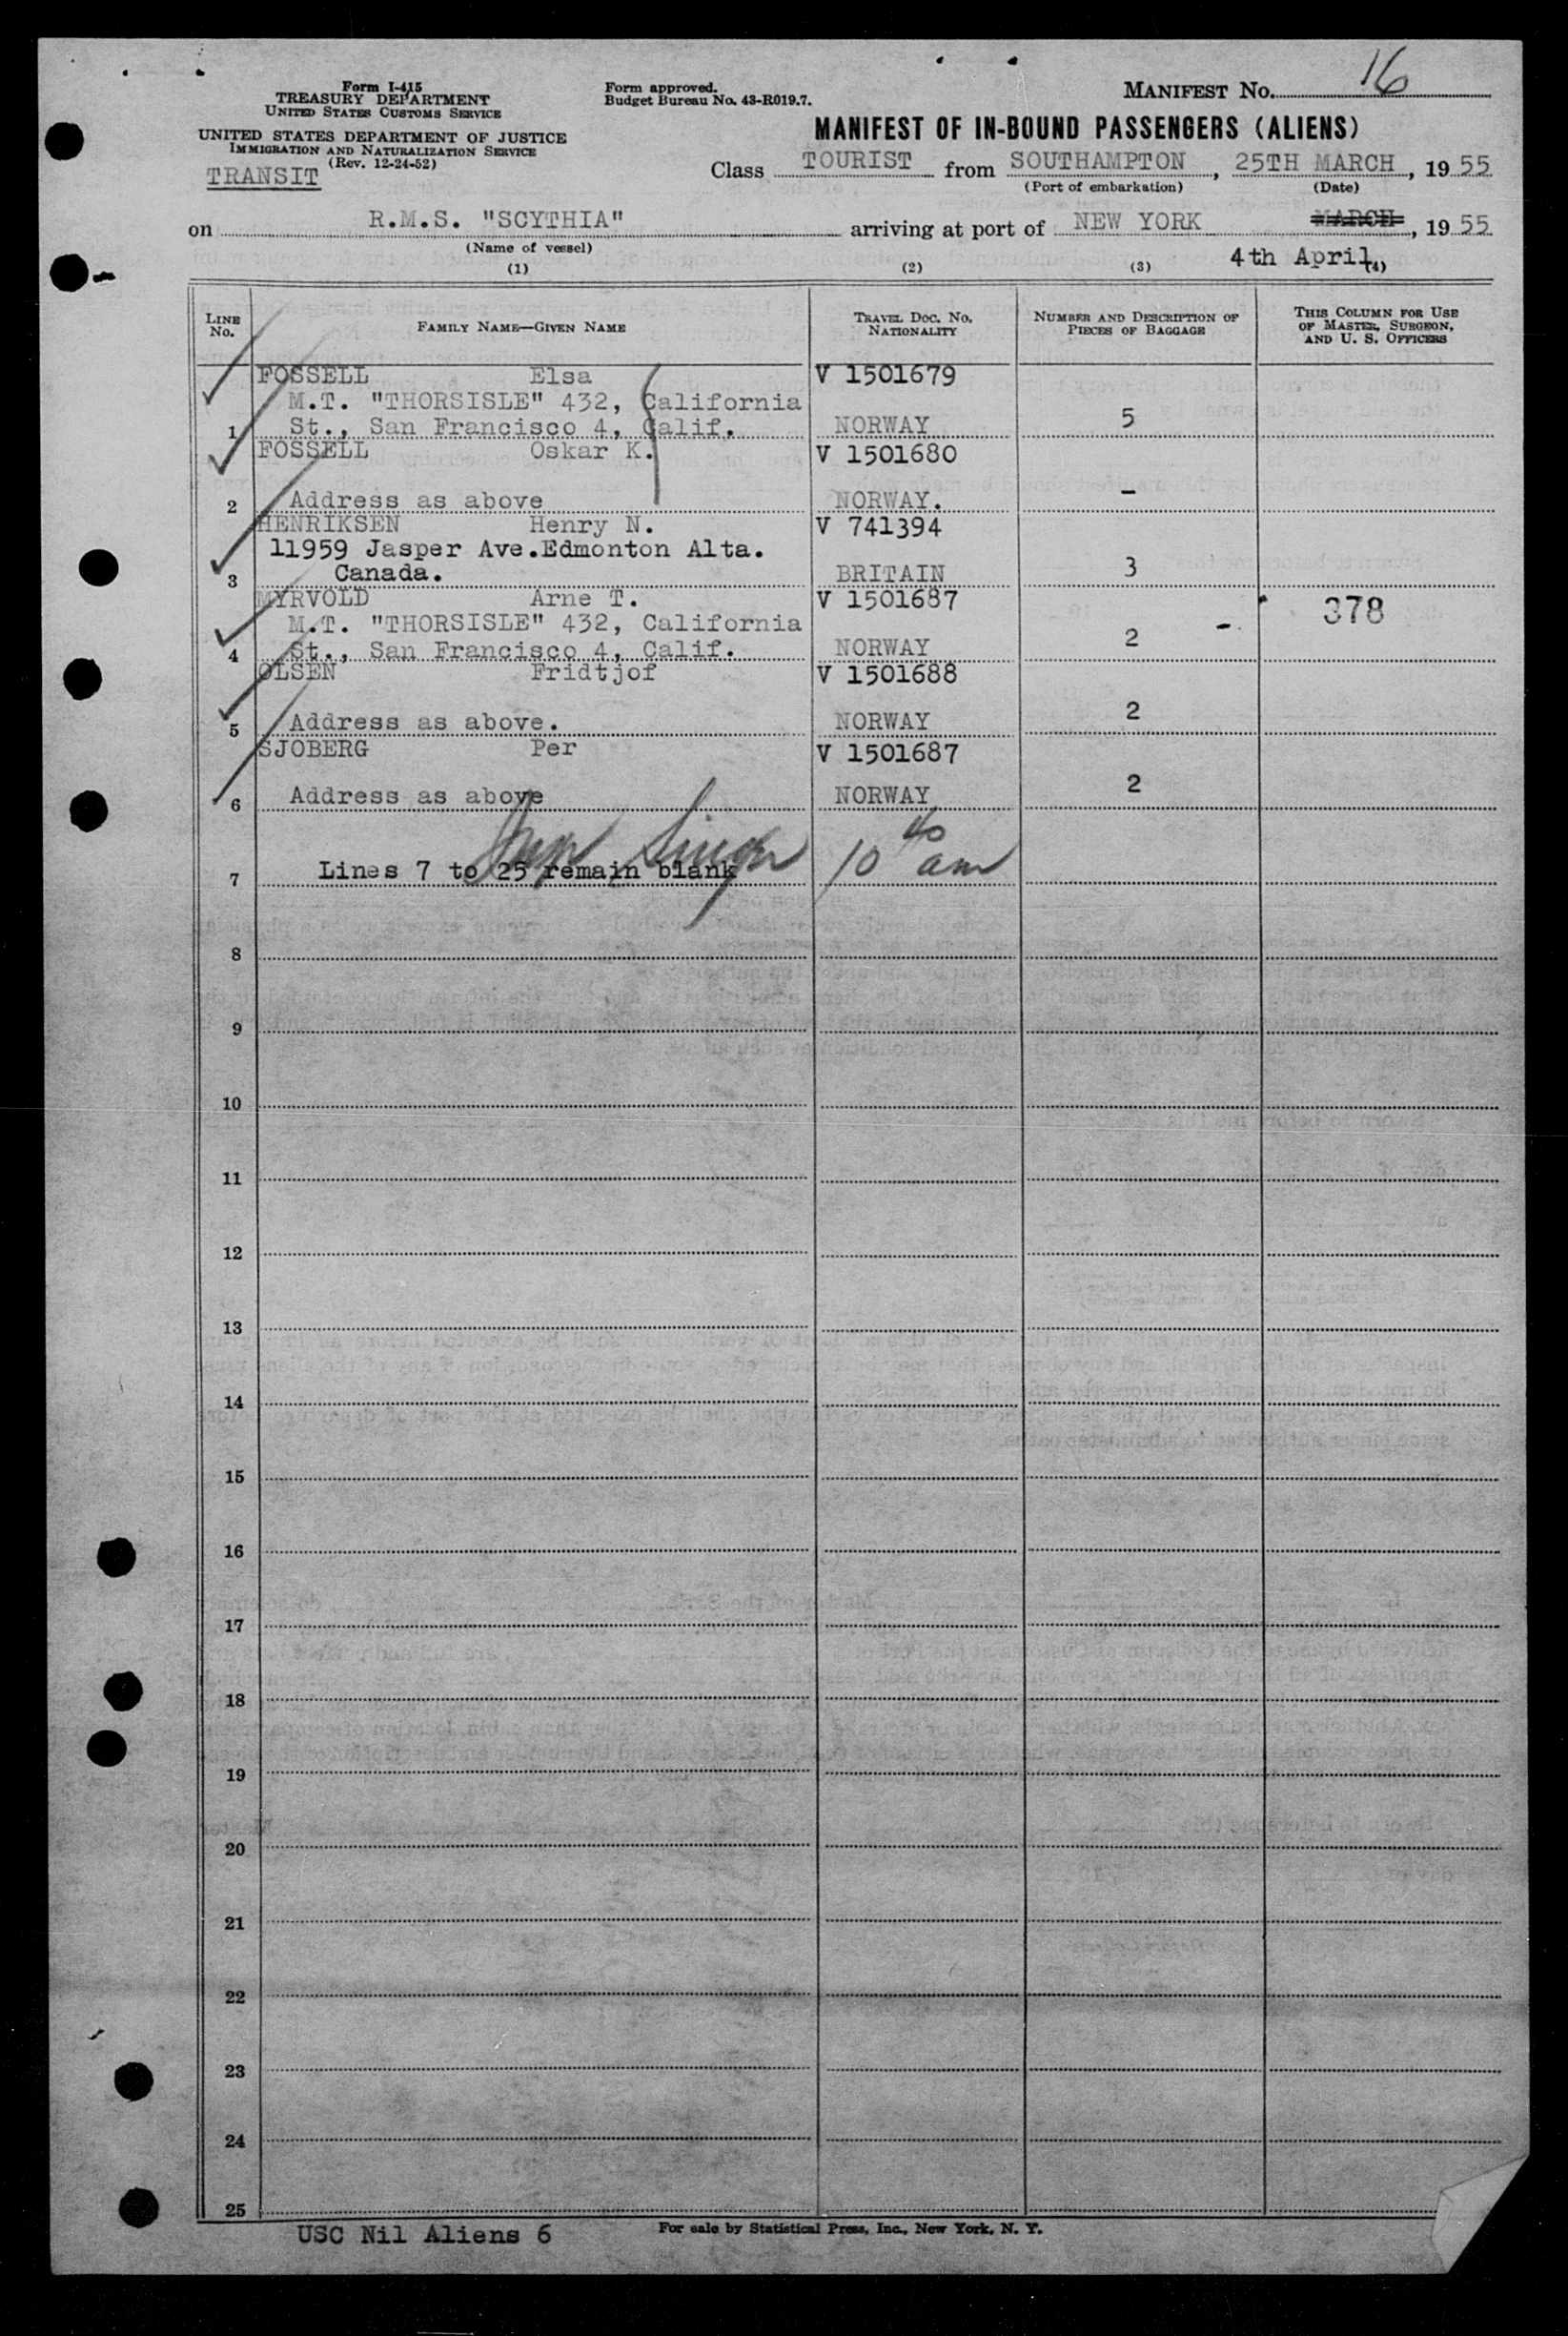 Form I-415
TREASURY DEPARTMENT
UNITED STATES CUSTOMS SERVICE
UNITED STATES DEPARTMENT OF JUSTICE
IMMIGRATION AND NATURALIZATION SERVICE
(Rev. 12-24-52)
TRANSIT
Form approved.
Budget Bureau No. 43-R019.7.
MANIFEST No. 16
MANIFEST OF IN-BOUND PASSENGERS (ALIENS)
Class TOURIST from SOUTHAMPTON, 25TH MARCH, 19 55
(Port of embarkation) (Date)
on R.M.S. "SCYTHIA" arriving at port of NEW YORK MARCH, 19 55
(Name of vessel) 4th April,
(1) (2) (3) (4)
LINE No. FAMILY NAME—GIVEN NAME TRAVEL DOC. NO. NATIONALITY NUMBER AND DESCRIPTION OF PIECES OF BAGGAGE THIS COLUMN FOR USE OF MASTER, SURGEON, AND U. S. OFFICERS
FOSSELL Elsa V 1501679
M.T. "THORSISLE" 432, California
1 St., San Francisco 4, Calif. NORWAY 5
FOSSELL Oskar K. V 1501680
2 Address as above NORWAY. -
HENRIKSEN Henry N. V 741394
11959 Jasper Ave.Edmonton Alta.
3 Canada. BRITAIN 3
MYRVOLD Arne T. V 1501687 378
M.T. "THORSISLE" 432, California
4 St., San Francisco 4, Calif. NORWAY 2 -
OLSEN Fridtjof V 1501688
5 Address as above. NORWAY 2
SJOBERG Per V 1501687
6 Address as above NORWAY 2
7 Lines 7 to 25 remain blank 10 40 am
8
9
10
11
12
13
14
15
16
17
18
19
20
21
22
23
24
25
USC Nil Aliens 6
For sale by Statistical Press, Inc., New York, N. Y.